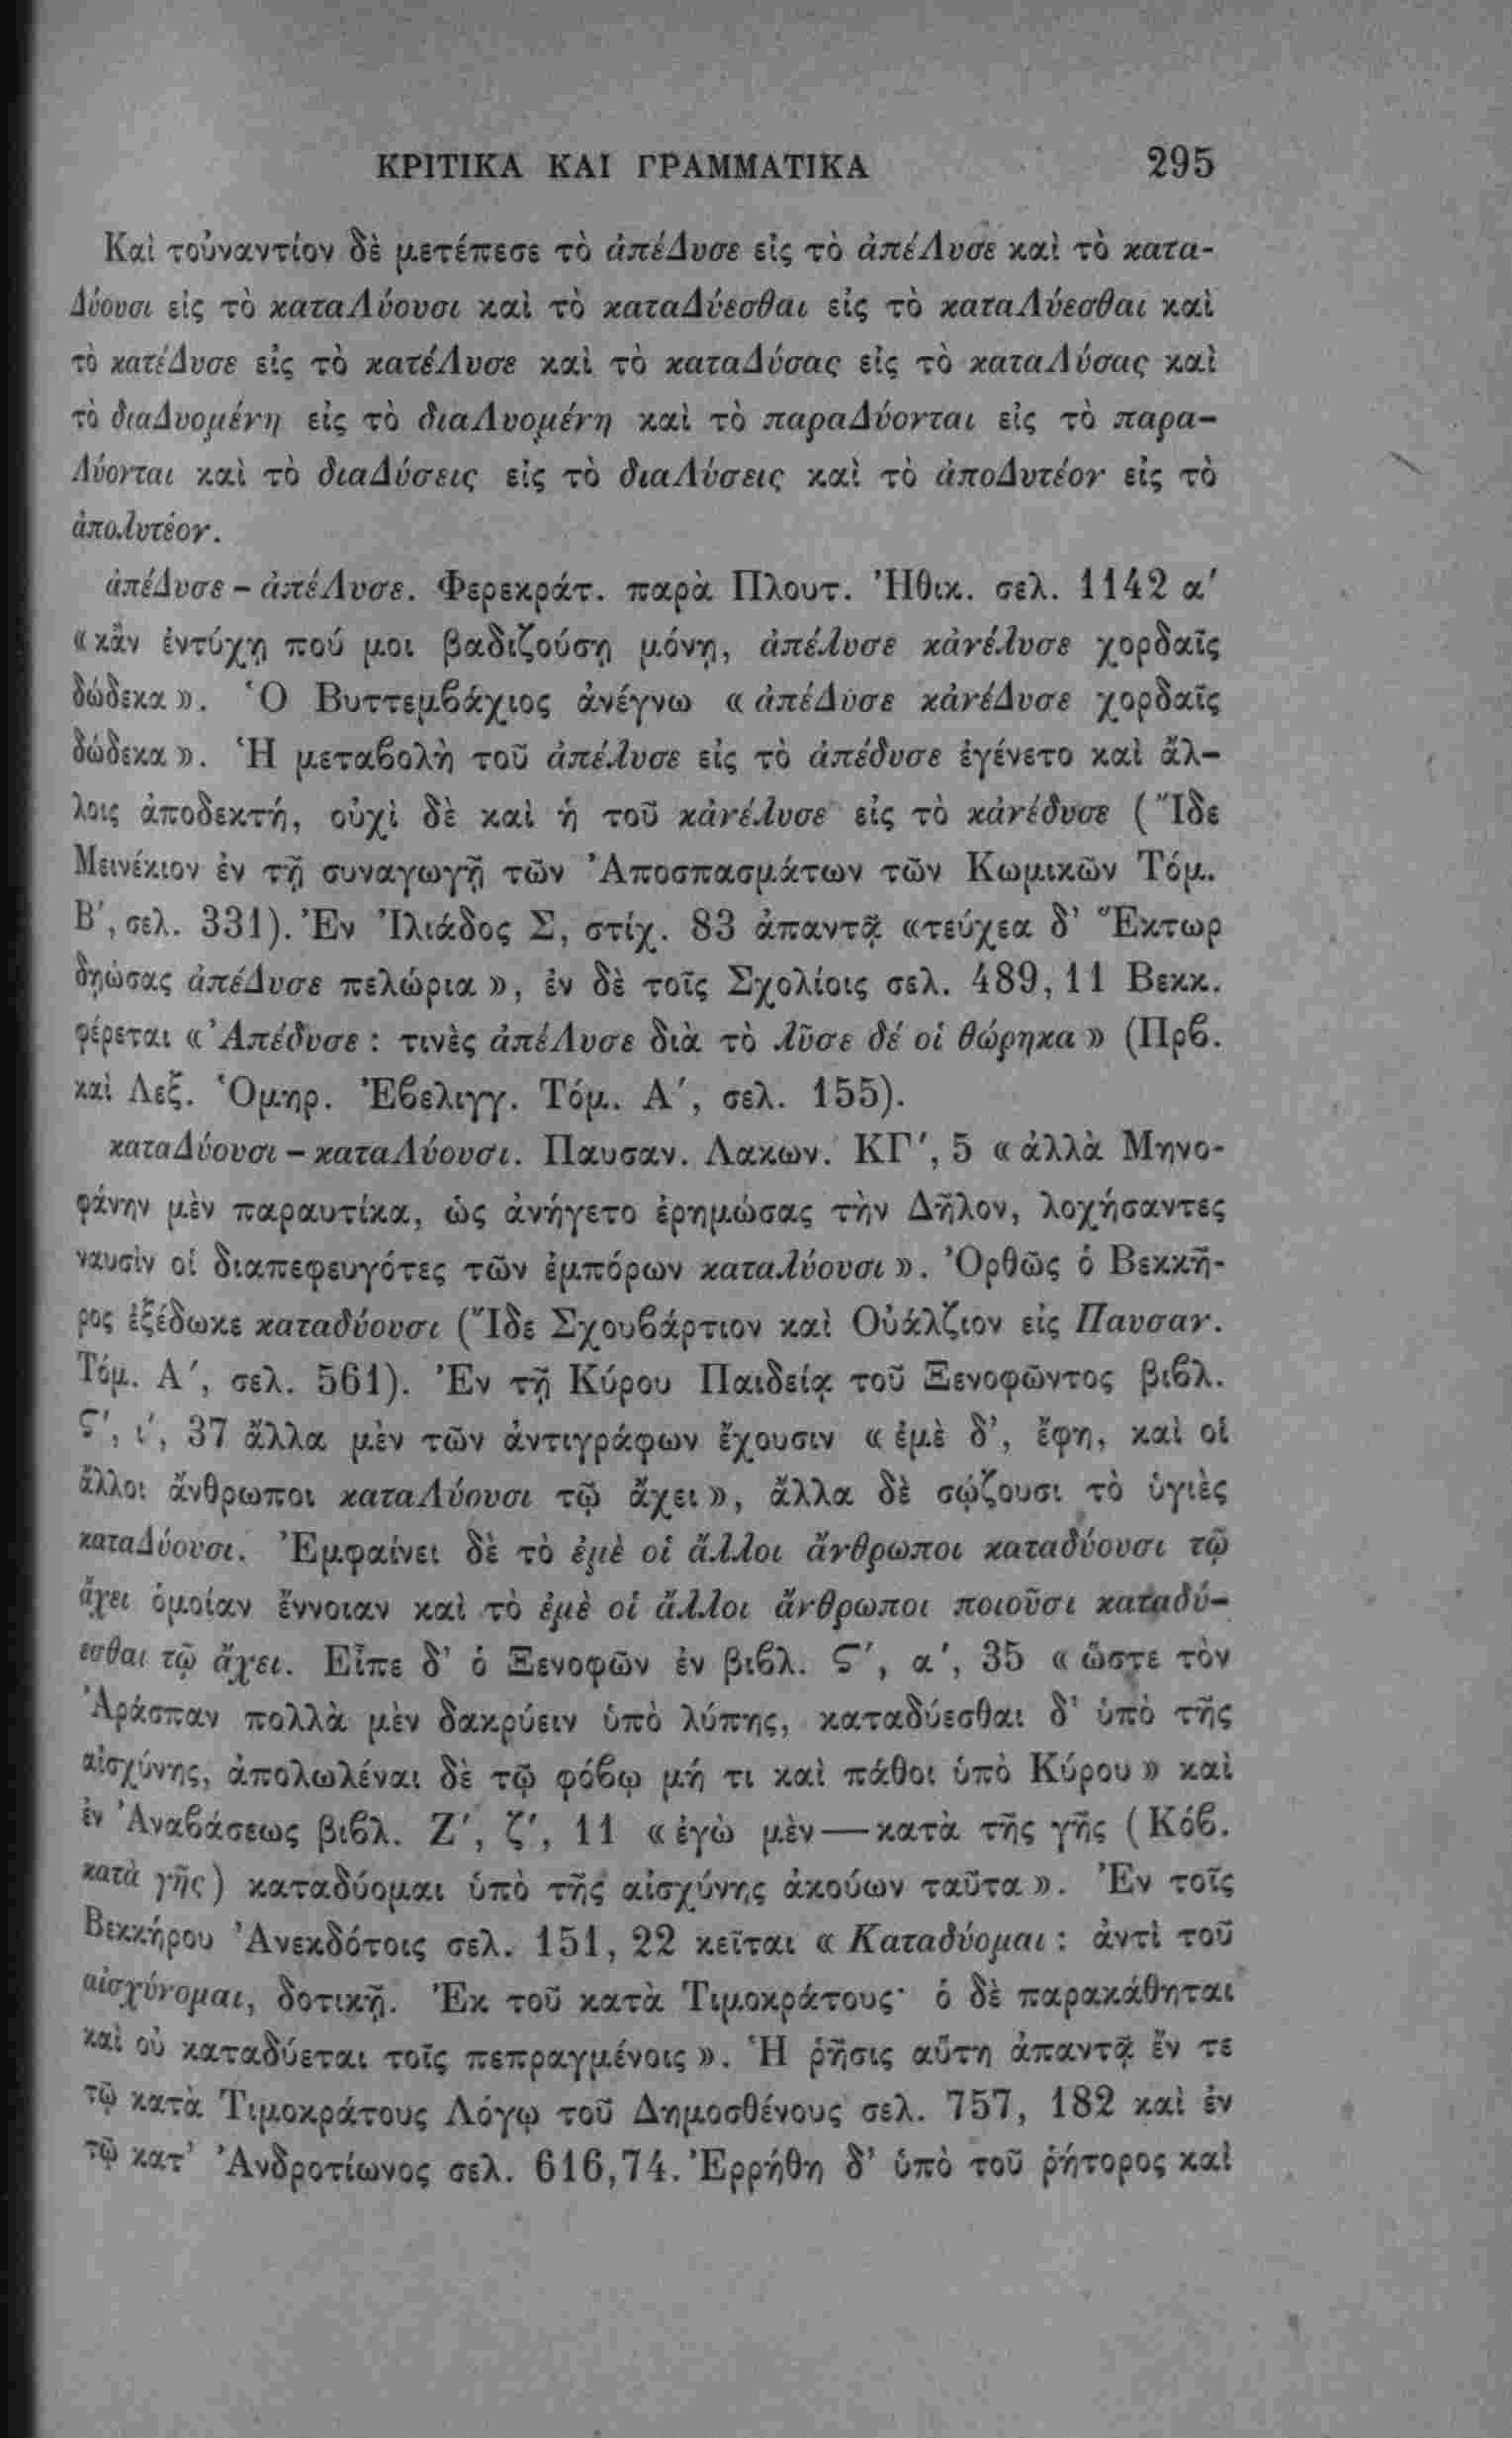 ΚΡΙΤΙΚΑ ΚΑΙ ΓΡΑΜΜΑΤΙΚΑ 295
Καὶ τοὐναντίον δὲ μετέπεσε τὸ ἀπέΔυσε εἰς τὸ ἀπέΛυσε καὶ τὸ κατα-
Δύουσι εἰς τὸ καταΛύουσι καὶ τὸ καταΔύεσθαι εἰς τὸ καταΛύεσθαι καὶ
τὸ κατέΔυσε εἰς τὸ κατέΛυσε καὶ τὸ καταΔύσας εἰς τὸ καταΛύσας καὶ
τὸ διαΔυομένη εἰς τὸ διαΛυομένη καὶ τὸ παραΔύονται εἰς τὸ παρα-
Λύονται καὶ τὸ διαΔύσεις εἰς τὸ διαΛύσεις καὶ τὸ ἀποΔυτέον εἰς τὸ
ἀπολυτέον.
ἀπέΔυσε – ἀπέΛυσε. Φερεκράτ. παρὰ Πλουτ. Ἠθικ. σελ. 1142 α′
«κἂν ἐντύχῃ πού μοι βαδιζούσῃ μόνῃ, ἀπέλυσε κἀνέλυσε χορδαῖς
δώδεκα». Ὁ Βυττεμβάχιος ἀνέγνω «ἀπέΔυσε κἀνέΔυσε χορδαῖς
δώδεκα». Ἡ μεταβολὴ τοῦ ἀπέλυσε εἰς τὸ ἀπέδυσε ἐγένετο καὶ ἄλ-
λοις ἀποδεκτή, οὐχὶ δὲ καὶ ἡ τοῦ κἀνέλυσε εἰς τὸ κἀνέδυσε (Ἴδε
Μεινέκιον ἐν τῇ συναγωγῇ τῶν Ἀποσπασμάτων τῶν Κωμικῶν Τόμ.
Β′, σελ. 331). Ἐν Ἰλιάδος Σ, στίχ. 83 ἀπαντᾷ «τεύχεα δ’ Ἕκτωρ
δῃώσας ἀπέΔυσε πελώρια», ἐν δὲ τοῖς Σχολίοις σελ. 489, 11 Βεκκ.
φέρεται «Ἀπέδυσε: τινὲς ἀπέΛυσε διὰ τὸ λῦσε δέ οἱ θώρηκα» (Πρβ.
καὶ Λεξ. Ὁμηρ. Ἐβελιγγ. Τόμ. Α′, σελ. 155).
καταΔύουσι – καταΛύουσι. Παυσαν. Λακων. ΚΓ′, 5 «ἀλλὰ Μηνο-
φάνην μὲν παραυτίκα, ὡς ἀνήγετο ἐρημώσας τὴν Δῆλον, λοχήσαντες
ναυσὶν οἱ διαπεφευγότες τῶν ἐμπόρων καταλύουσι». Ὀρθῶς ὁ Βεκκῆ-
ρος ἐξέδωκε καταδύουσι (Ἴδε Σχουβάρτιον καὶ Οὐάλζιον εἰς Παυσαν.
Τόμ. Α′, σελ. 561). Ἐν τῇ Κύρου Παιδείᾳ τοῦ Ξενοφῶντος βιβλ.
Ϛ′, ι′, 37 ἄλλα μὲν τῶν ἀντιγράφων ἔχουσιν «ἐμὲ δ’, ἔφη, καὶ οἱ
ἄλλοι ἄνθρωποι καταΛύουσι τῷ ἄχει», ἄλλα δὲ σῴζουσι τὸ ὑγιὲς
καταΔύουσι. Ἐμφαίνει δὲ τὸ ἐμὲ οἱ ἄλλοι ἄνθρωποι καταδύουσι τῷ
ἄχει ὁμοίαν ἔννοιαν καὶ τὸ ἐμὲ οἱ ἄλλοι ἄνθρωποι ποιοῦσι καταδύ-
εσθαι τῷ ἄχει. Εἶπε δ’ ὁ Ξενοφῶν ἐν βιβλ. Ϛ′, α′, 35 «ὥστε τὸν
Ἀράσπαν πολλὰ μὲν δακρύειν ὑπὸ λύπης, καταδύεσθαι δ’ ὑπὸ τῆς
αἰσχύνης, ἀπολωλέναι δὲ τῷ φόβῳ μή τι καὶ πάθοι ὑπὸ Κύρου» καὶ
ἐν Ἀναβάσεως βιβλ. Ζ′, ζ′, 11 «ἐγὼ μὲν — κατὰ τῆς γῆς (Κόβ.
κατὰ γῆς) καταδύομαι ὑπὸ τῆς αἰσχύνης ἀκούων ταῦτα». Ἐν τοῖς
Βεκκήρου Ἀνεκδότοις σελ. 151, 22 κεῖται «Καταδύομαι: ἀντὶ τοῦ
αἰσχύνομαι, δοτικῇ. Ἐκ τοῦ κατὰ Τιμοκράτους· ὁ δὲ παρακάθηται
καὶ οὐ καταδύεται τοῖς πεπραγμένοις». Ἡ ῥῆσις αὕτη ἀπαντᾷ ἔν τε
τῷ κατὰ Τιμοκράτους Λόγῳ τοῦ Δημοσθένους σελ. 757, 182 καὶ ἐν
τῷ κατ’ Ἀνδροτίωνος σελ. 616,74. Ἐρρήθη δ’ ὑπὸ τοῦ ῥήτορος καὶ